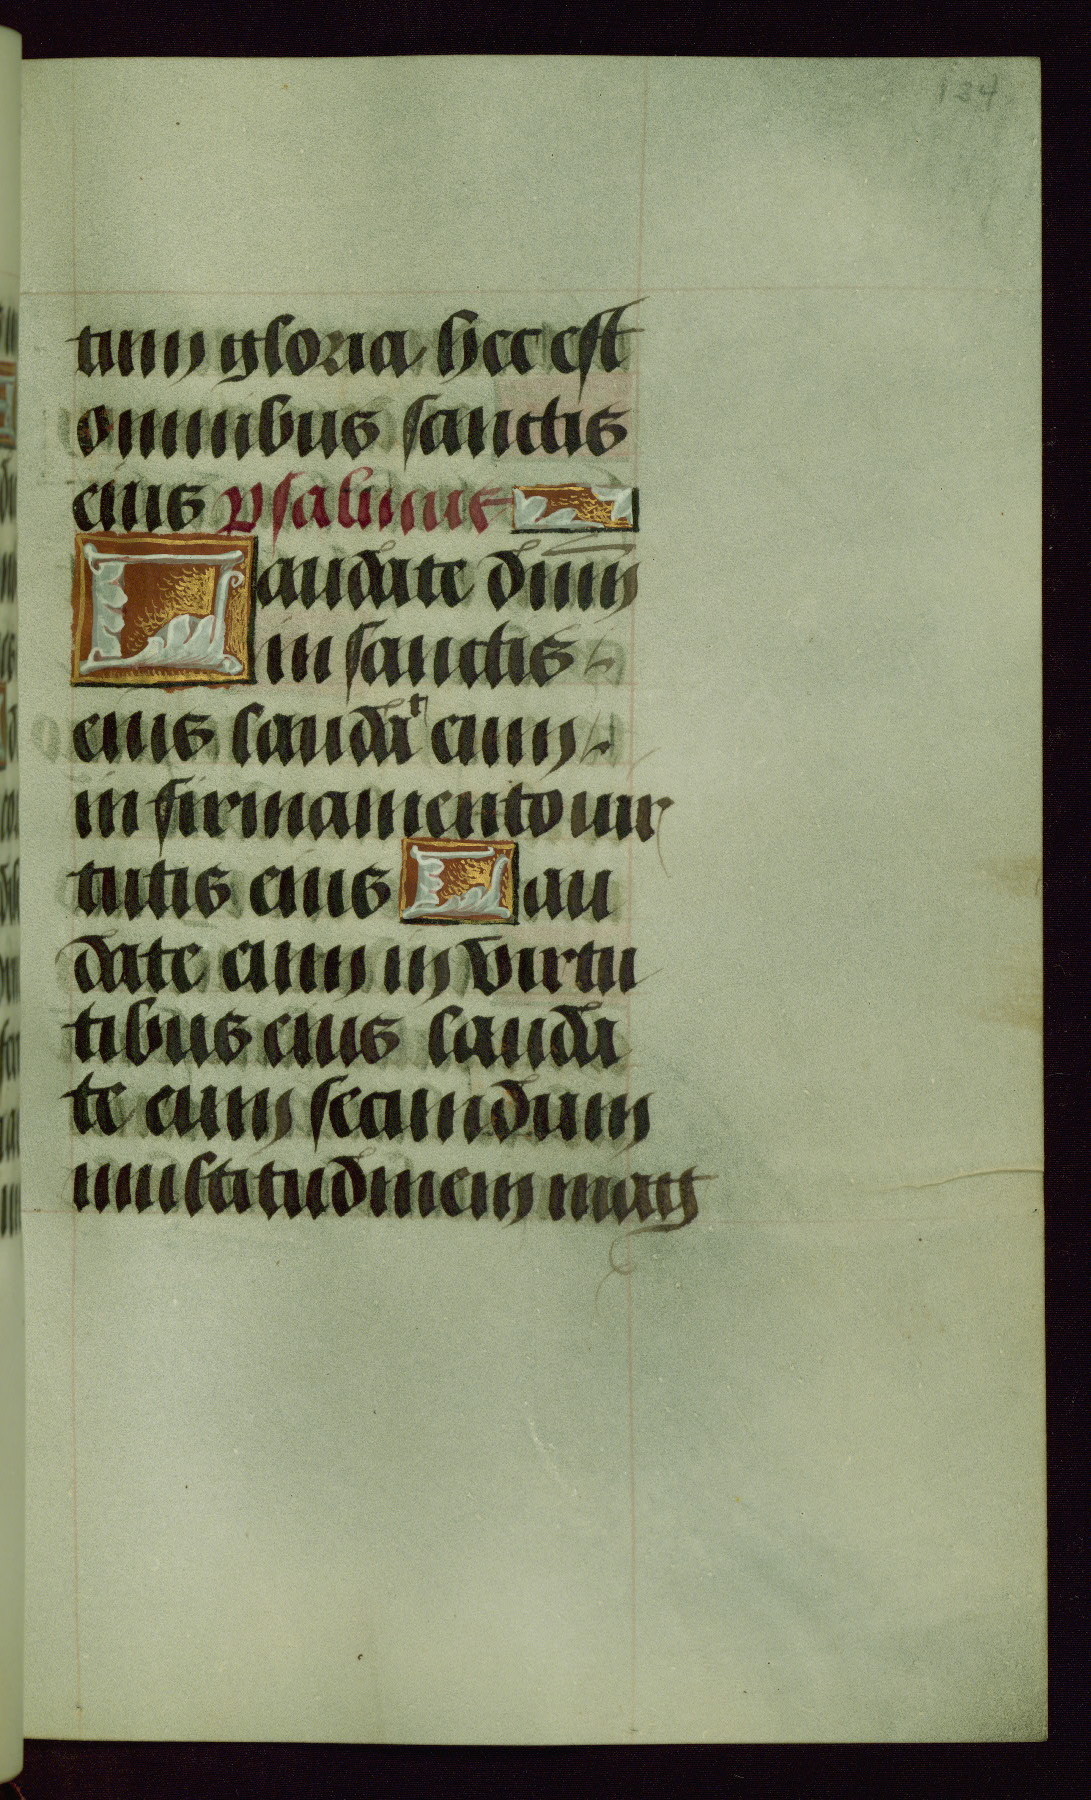 134
tum gloria hec est
omnibus sanctis
eius psalmus
Laudate dnm
in sanctis
eius laudat eum
in firmamento uir
tutis eius Lau
date eum in virtu
tibus eius lauda
te eum secundum
multitudinem mag